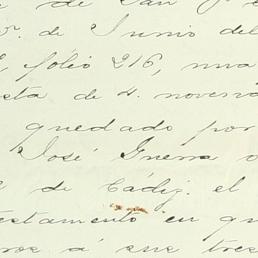 de San
5. de Junio del
folio 216, una
de 4. novem
quedado por
José Guerra
de Cádiz. el
testamento en qu
á sus tres